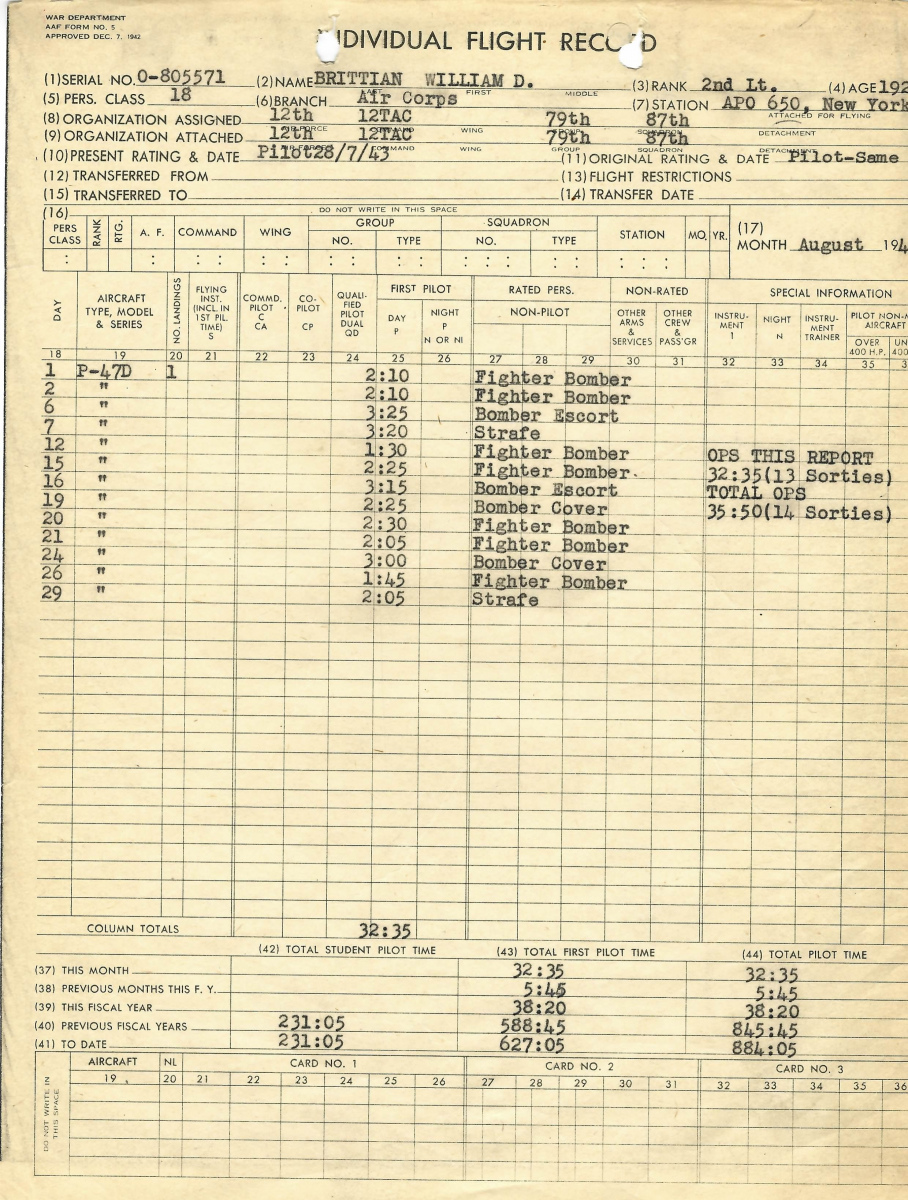 WAR DEPARTMENT
AAF FORM NO. 5
APPROVED DEC. 7, 1942
INDIVIDUAL FLIGHT RECORD
(1) SERIAL NO. O-805571 (2) NAME BRITTIAN WILLIAM D. (3) RANK 2nd Lt. (4) AGE 192
LAST FIRST MIDDLE
(5) PERS. CLASS 18 (6) BRANCH Air Corps (7) STATION APO 650, New York
(8) ORGANIZATION ASSIGNED 12th 12TAC 79th 87th ATTACHED FOR FLYING
AIR FORCE COMMAND WING GROUP SQUADRON DETACHMENT
(9) ORGANIZATION ATTACHED 12th 12TAC 79th 87th
AIR FORCE COMMAND WING GROUP SQUADRON DETACHMENT
(10) PRESENT RATING & DATE Pilot28/7/43 (11) ORIGINAL RATING & DATE Pilot-Same
(12) TRANSFERRED FROM (13) FLIGHT RESTRICTIONS
(15) TRANSFERRED TO (14) TRANSFER DATE
(16) DO NOT WRITE IN THIS SPACE
PERS CLASS RANK RTG. A. F. COMMAND WING GROUP NO. TYPE SQUADRON NO. TYPE STATION MO. YR. (17) MONTH August 194
DAY AIRCRAFT TYPE, MODEL & SERIES NO. LANDINGS FLYING INST. (INCL. IN 1ST PIL. TIME) S COMMD. PILOT C CA CO-PILOT CP QUALIFIED PILOT DUAL QD FIRST PILOT DAY P NIGHT P N OR NI RATED PERS. NON-PILOT NON-RATED OTHER ARMS & SERVICES OTHER CREW & PASS'GR SPECIAL INFORMATION INSTRUMENT I NIGHT N INSTRUMENT TRAINER PILOT NON-M AIRCRAFT OVER 400 H.P. UN 400
18 19 20 21 22 23 24 25 26 27 28 29 30 31 32 33 34 35 3
1 P-47D 1 2:10 Fighter Bomber
2 " 2:10 Fighter Bomber
6 " 3:25 Bomber Escort
7 " 3:20 Strafe
12 " 1:30 Fighter Bomber OPS THIS REPORT
15 " 2:25 Fighter Bomber 32:35(13 Sorties)
16 " 3:15 Bomber Escort TOTAL OPS
19 " 2:25 Bomber Cover 35:50(14 Sorties)
20 " 2:30 Fighter Bomber
21 " 2:05 Fighter Bomber
24 " 3:00 Bomber Cover
26 " 1:45 Fighter Bomber
29 " 2:05 Strafe
COLUMN TOTALS 32:35
(42) TOTAL STUDENT PILOT TIME (43) TOTAL FIRST PILOT TIME (44) TOTAL PILOT TIME
(37) THIS MONTH 32:35 32:35
(38) PREVIOUS MONTHS THIS F. Y. 5:45 5:45
(39) THIS FISCAL YEAR 38:20 38:20
(40) PREVIOUS FISCAL YEARS 231:05 588:45 845:45
(41) TO DATE 231:05 627:05 884:05
DO NOT WRITE IN THIS SPACE
AIRCRAFT NL CARD NO. 1 CARD NO. 2 CARD NO. 3
19 20 21 22 23 24 25 26 27 28 29 30 31 32 33 34 35 36